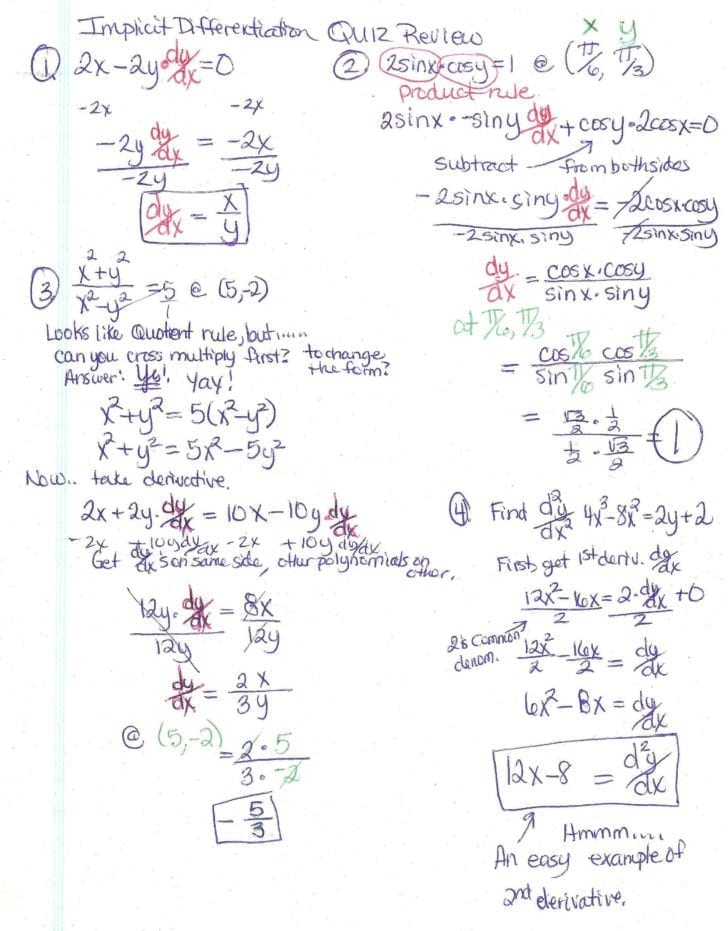 Implicit Differentiation Quiz Review
① 2x-2y·dy/dx=0
-2x -2x
-2y dy/dx = -2x
-2y -2y
dy/dx = x/y
x y
② 2sinx·cosy=1 @ (π/6, π/3)
product rule
2sinx·-siny dy/dx + cosy·2cosx=0
subtract from both sides
-2sinx·siny·dy/dx = -2cosx·cosy
-2sinx·siny -2sinx·siny
dy/dx = cosx·cosy / sinx·siny
at π/6, π/3
= cos π/6 cos π/3 / sin π/6 sin π/3
= √3/2 · 1/2 / 1/2 · √3/2 = 1
③ x²+y² / x²-y² = 5 @ (5,-2)
Looks like Quotient rule, but.....
can you cross multiply first? to change the form?
Answer: Yes! Yay!
x²+y² = 5(x²-y²)
x²+y² = 5x²-5y²
Now.. take derivative.
2x+2y·dy/dx = 10x-10y·dy/dx
-2x +10y dy/dx -2x +10y dy/dx
Get dy/dx's on same side, other polynomials on other.
12y·dy/dx = 8x
12y 12y
dy/dx = 2x/3y
@ (5,-2) = 2·5 / 3·-2
-5/3
④ Find d²y/dx² 4x³-8x²=2y+2
First get 1st deriv. dy/dx
12x²-16x = 2·dy/dx + 0
2 2
2 is common denom.
12x²/2 - 16x/2 = dy/dx
6x²-8x = dy/dx
12x-8 = d²y/dx
Hmmm....
An easy example of
2nd derivative.